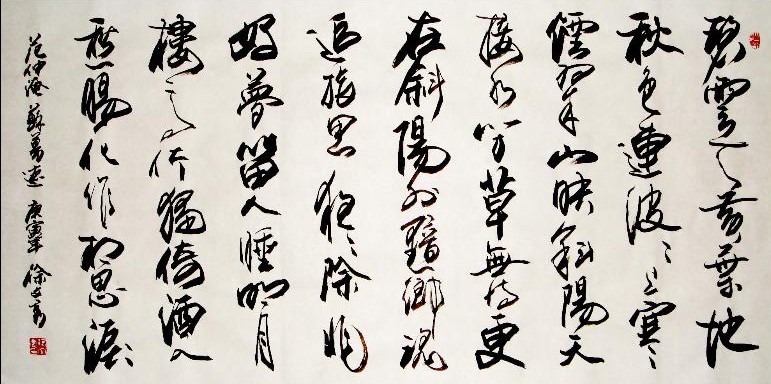 碧雲天黄葉地
秋色連波〻上寒
煙翠山映斜陽天
接水芳草無情更
在斜陽外黯鄉魂
追旅思夜〻除非
好夢留人睡明月
樓高休獨倚酒入
愁腸化作相思淚
范仲淹 蘇幕遮 庚寅 徐